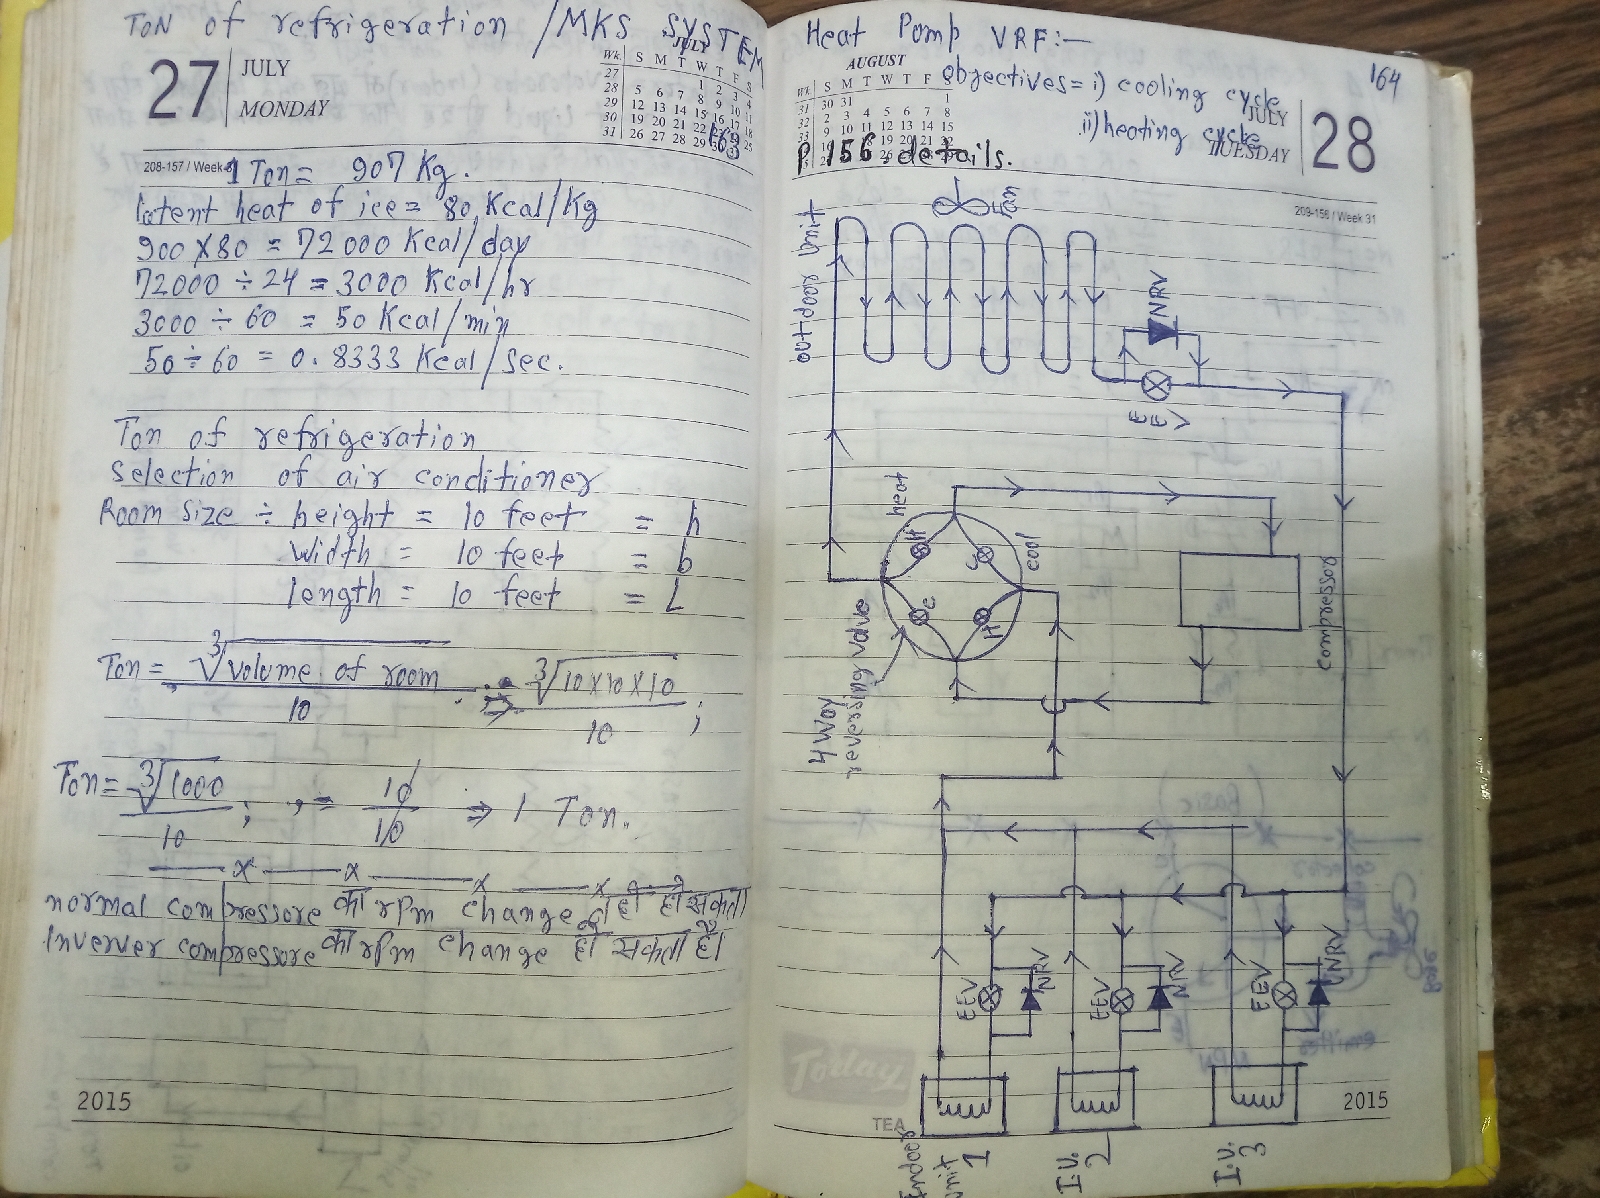 Ton of refrigeration / MKS SYSTEM
27
JULY
MONDAY
JULY
Wk S M T W T F S
27 1 2 3 4
28 5 6 7 8 9 10 11
29 12 13 14 15 16 17 18
30 19 20 21 22 23 24 25
31 26 27 28 29 30 31
163
208-157 / Week 31
1 Ton = 907 Kg.
latent heat of ice = 80 Kcal/Kg
900 X 80 = 72000 Kcal/day
72000 ÷ 24 = 3000 Kcal/hr
3000 ÷ 60 = 50 Kcal/min
50 ÷ 60 = 0.8333 Kcal/sec.
Ton of refrigeration
selection of air conditioner
Room size ÷ height = 10 feet = h
width = 10 feet = b
length = 10 feet = L
Ton = ∛volume of room / 10 ⇒ ∛10X10X10 / 10 ;
Ton = ∛1000 / 10 ; , = 10 / 10 ⇒ 1 Ton.
— x — x — x — x —
normal compressore का rpm change नही हो सकता
Inverver compressore का rpm change हो सकता है।
2015
Heat Pomp VRF :—
164
AUGUST
Wk S M T W T F S
31 30 31 1
32 2 3 4 5 6 7 8
33 9 10 11 12 13 14 15
objectives = i) cooling cycle
ii) heating cycle
JULY
TUESDAY
28
P 156 details.
209-156 / Week 31
Fan
outdoor unit
NRV
EEV
heat
H
C
cool
C
H
4 way
reverssing valve
compressor
EEV
NRV
EEV
NRV
EEV
NRV
Today
TEA
2015
Indoor
unit
1
I.U.
2
I.U.
3